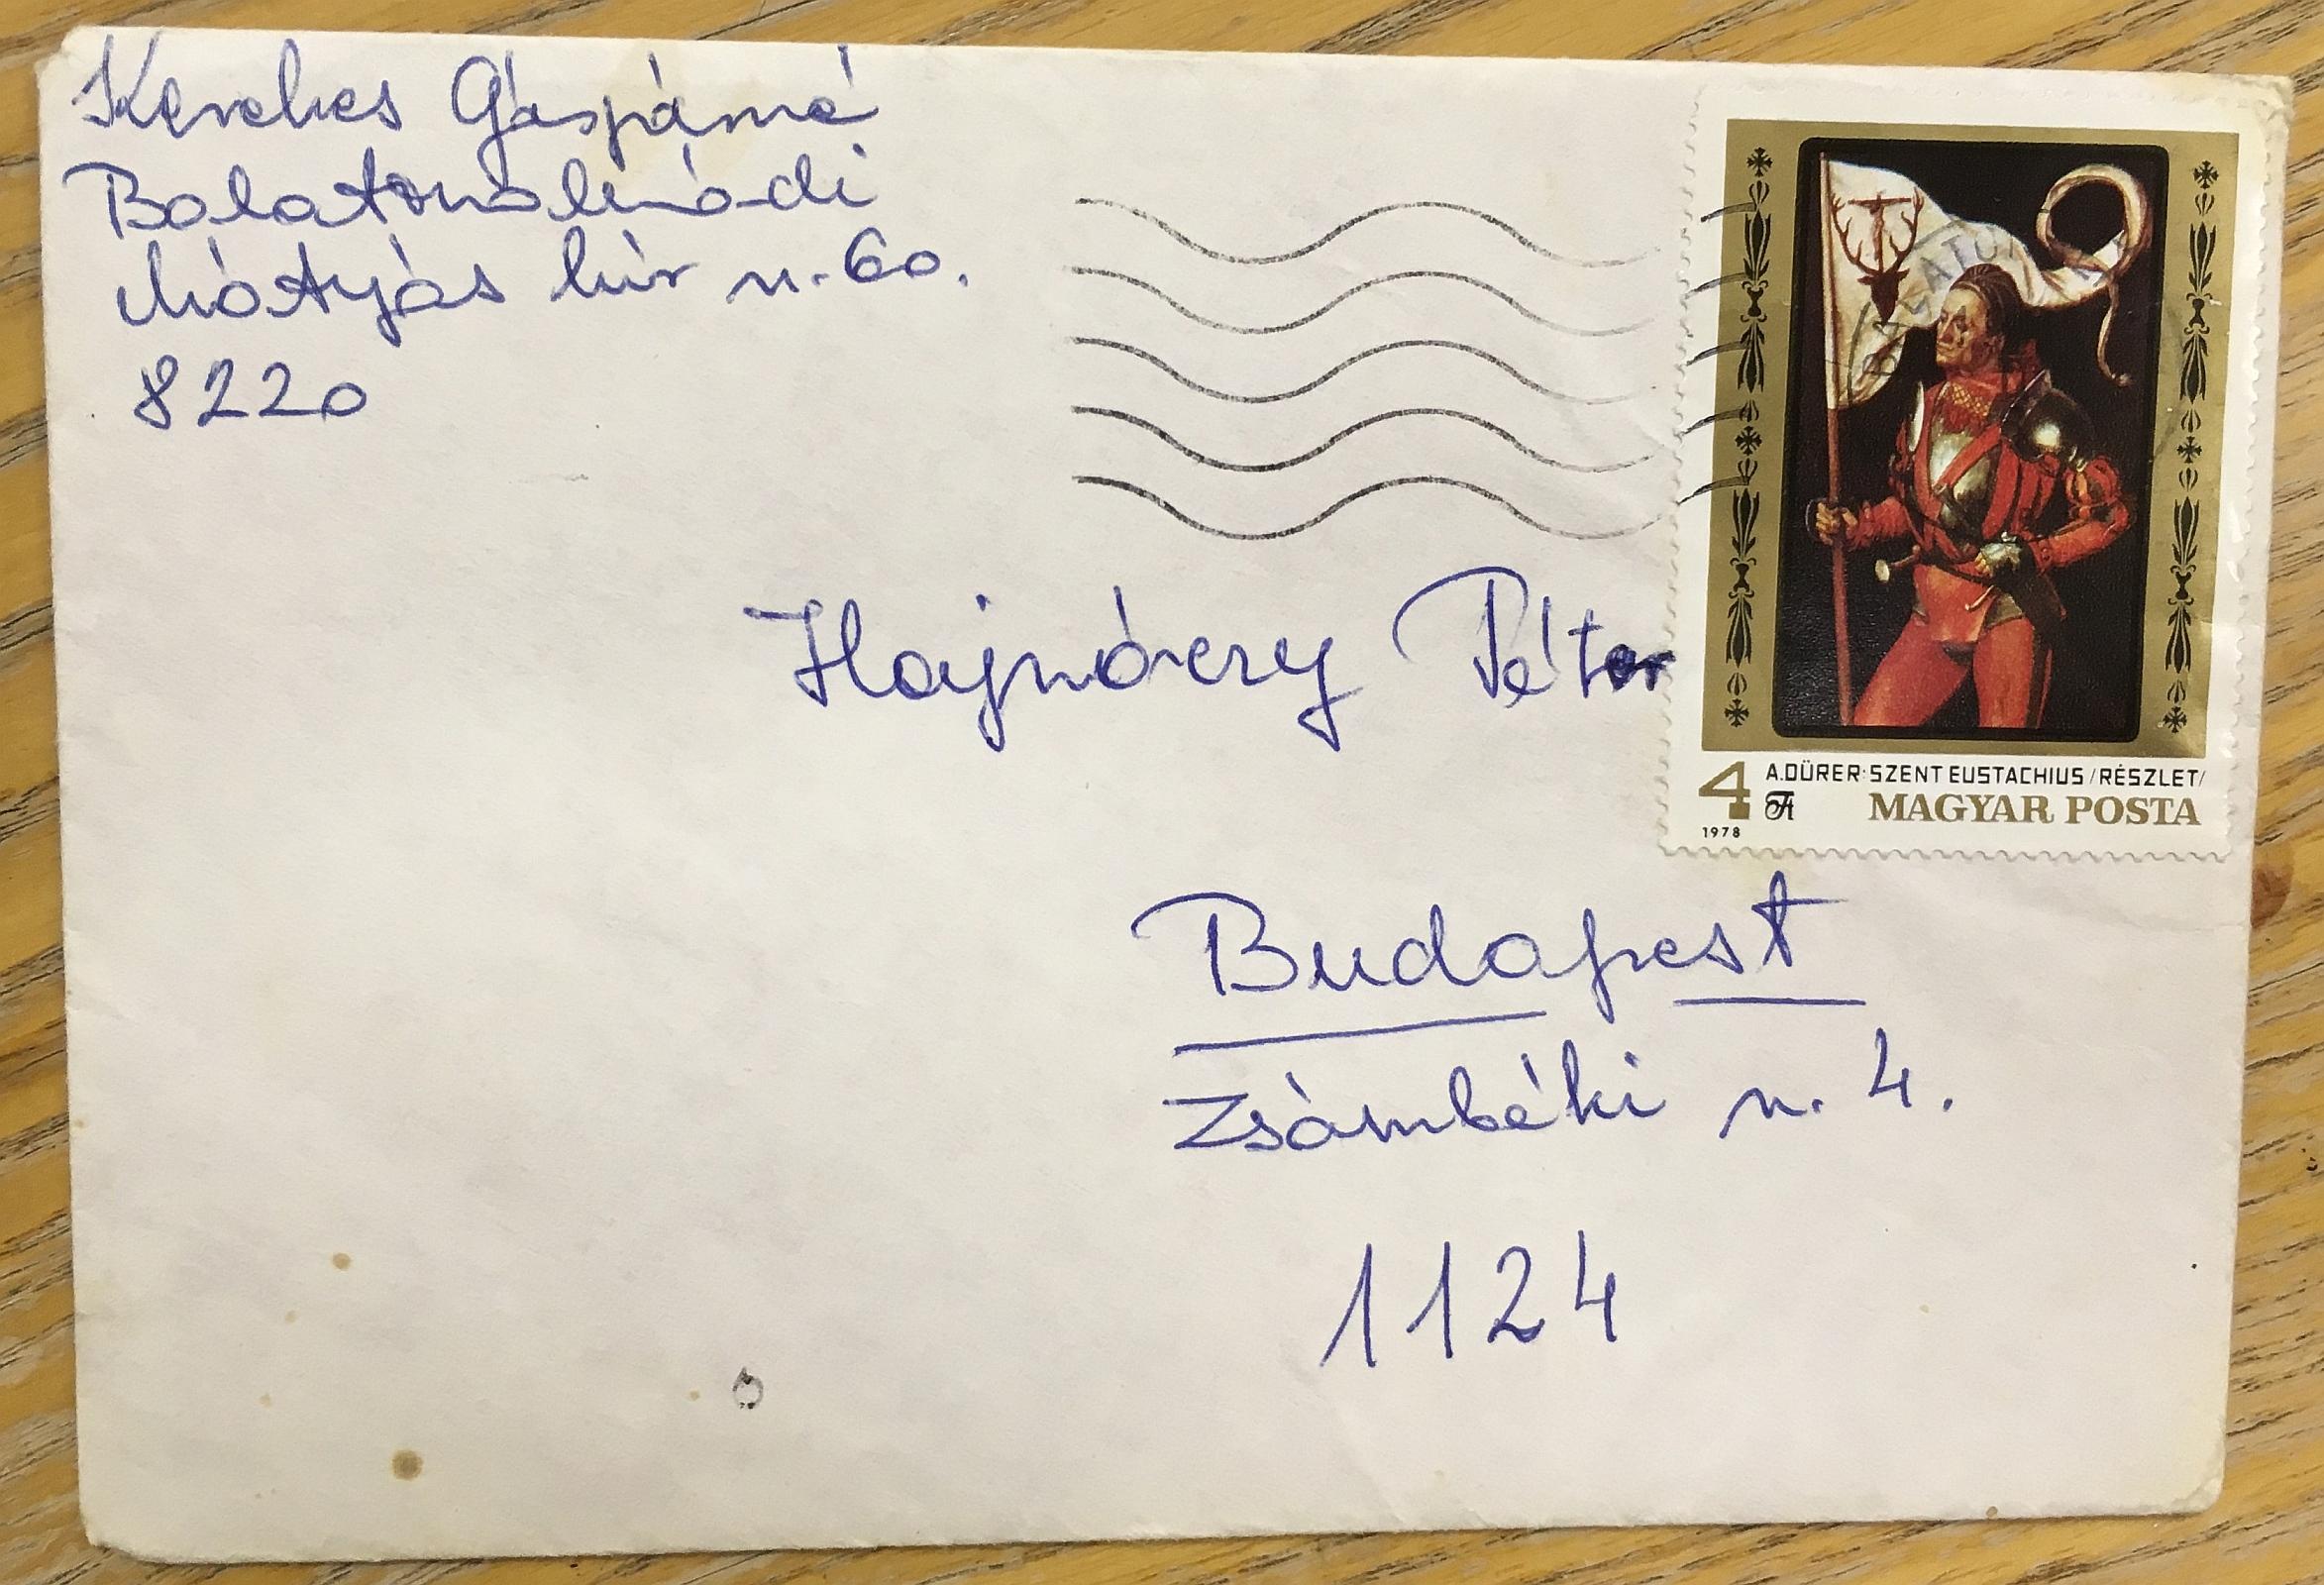 Kerekes Gáspárné
Balatonalmádi
Mátyás kir u. 60.
8220
BALATON
Hajnóczy Péter
4 Ft
A.DÜRER: SZENT EUSTACHIUS /RÉSZLET/
MAGYAR POSTA
1978
Budapest
Zsámbéki u. 4.
1124